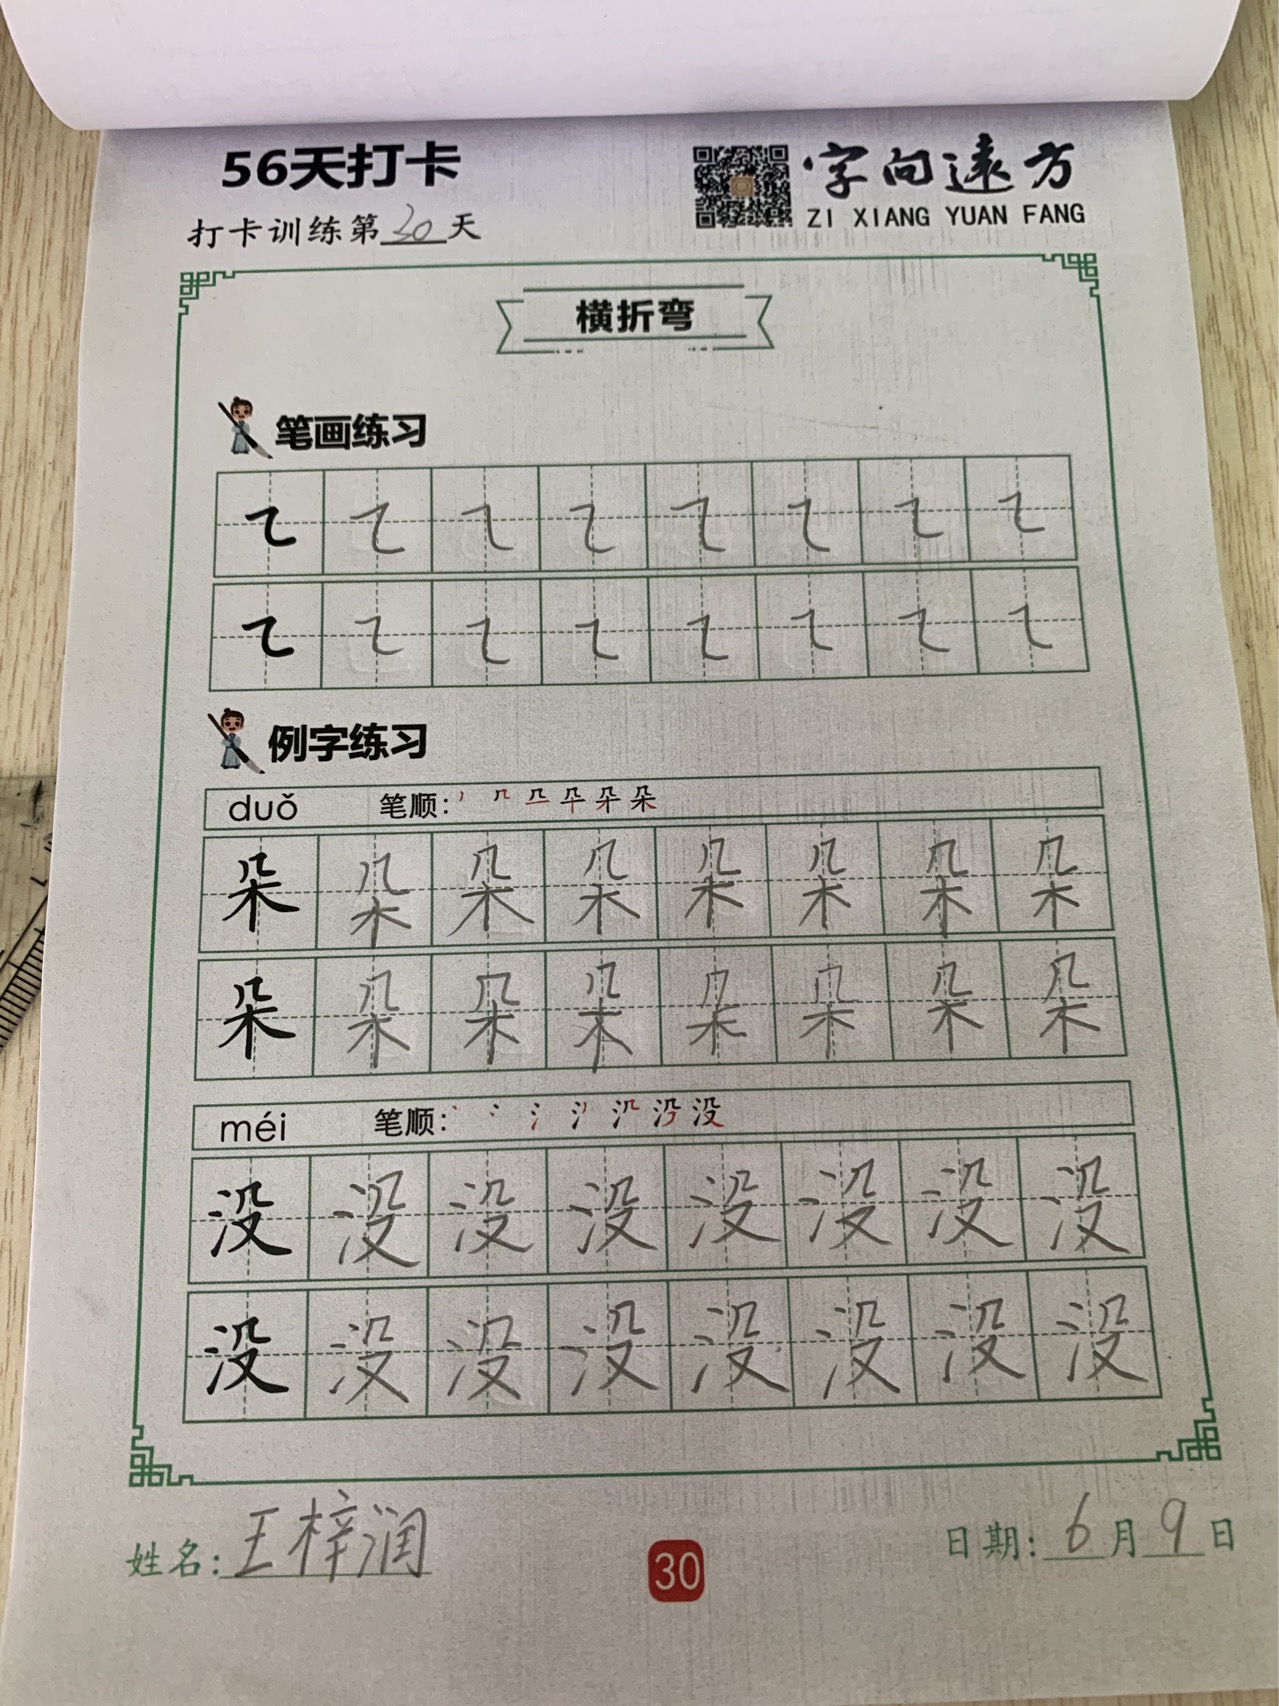 56天打卡
字向远方
ZI XIANG YUAN FANG
打卡训练第30天
横折弯
笔画练习
㇍ ㇍ ㇍ ㇍ ㇍ ㇍ ㇍ ㇍
㇍ ㇍ ㇍ ㇍ ㇍ ㇍ ㇍ ㇍
例字练习
duǒ 笔顺:
朵 朵 朵 朵 朵 朵 朵 朵
朵 朵 朵 朵 朵 朵 朵 朵
méi 笔顺: 没
没 没 没 没 没 没 没 没
没 没 没 没 没 没 没 没
姓名:王梓润
30
日期:6月9日